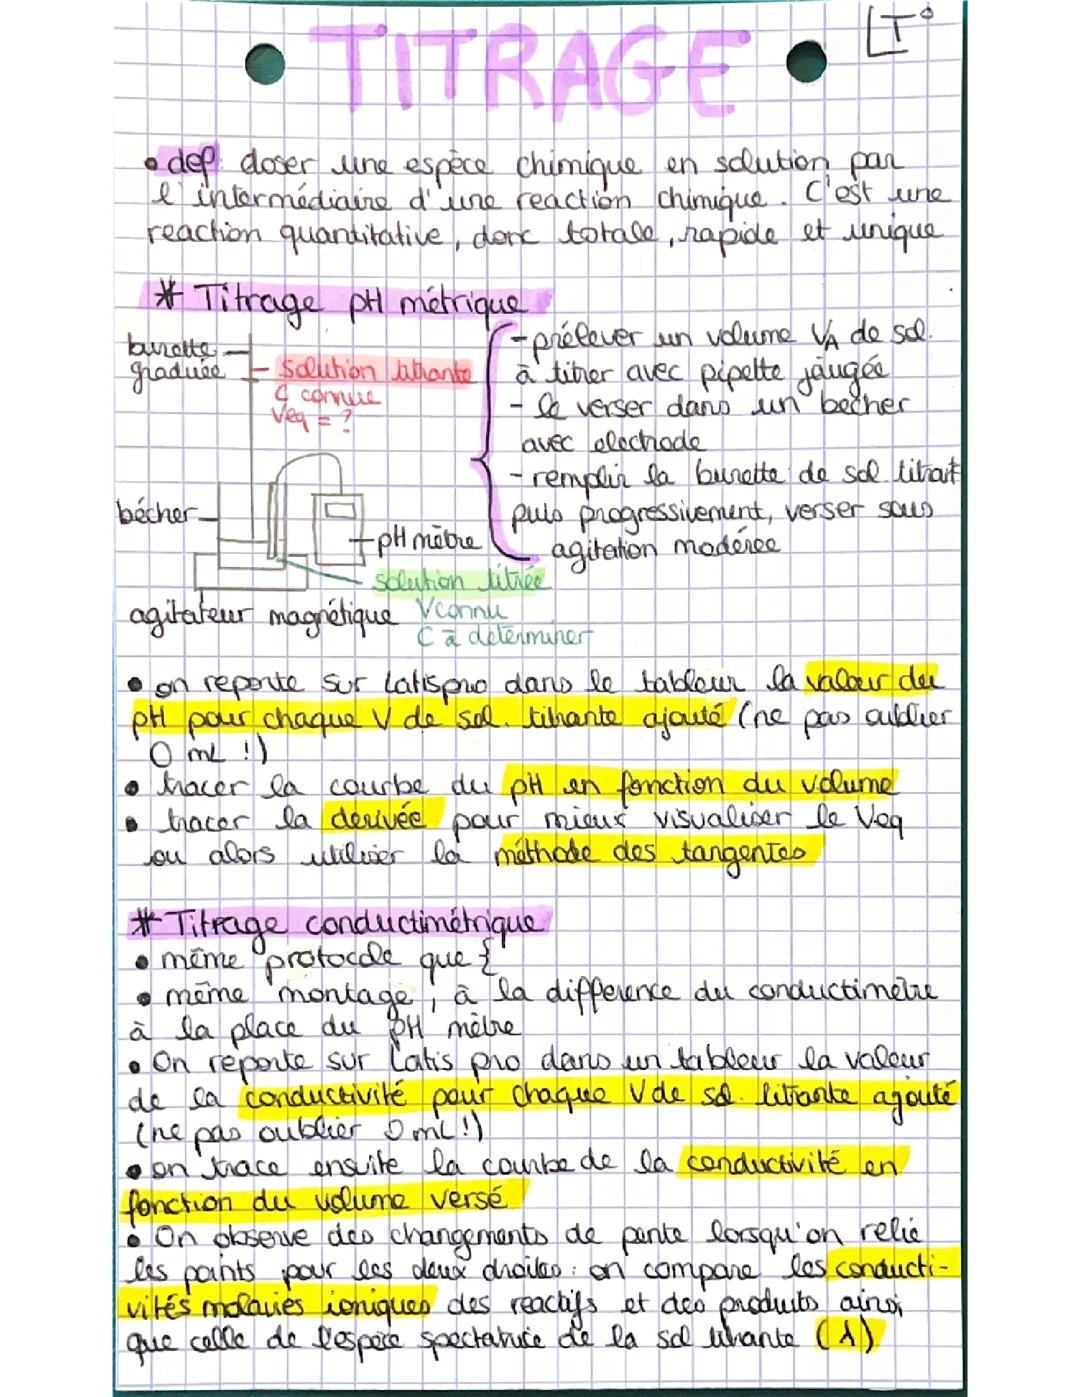 TITRAGE
T°
• def: doser une espèce chimique en solution par
l'intermédiaire d'une reaction chimique. C'est une
reaction quantitative, donc totale, rapide et unique
* Titrage pH métrique
burette
graduée
solution titrante
C connue
Veq = ?
bécher
pH mètre
solution titrée
V connu
C à déterminer
agitateur magnétique
- prélever un volume VA de sol.
à titrer avec pipette jaugée
- le verser dans un becher
avec electrode
- remplir la burette de sol. titrait
puis progressivement, verser sous
agitation modérée
• on reporte sur Latispro dans le tableur la valeur du
pH pour chaque V de sol. titrante ajouté (ne pas oublier
0 mL !)
• tracer la courbe du pH en fonction du volume
• tracer la derivée pour mieux visualiser le Veq
ou alors utiliser la méthode des tangentes
* Titrage conductimétrique
• même protocole que {
• même montage, à la difference du conductimètre
à la place du pH mètre
• On reporte sur Latis pro dans un tableur la valeur
de la conductivité pour chaque V de sol. titrante ajouté
(ne pas oublier 0 mL!)
• on trace ensuite la courbe de la conductivité en
fonction du volume versé
• On observe des changements de pente lorsqu'on relie
les points pour les deux droites : on compare les conducti-
vités molaires ioniques des reactifs et des produits ainsi
que celle de l'espèce spectatrice de la sol titrante (λ)